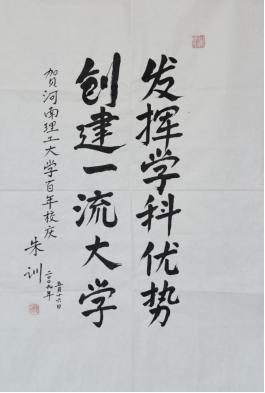 发挥学科优势
创建一流大学
贺河南理工大学百年校庆
朱训
二〇〇九年
五月十六日